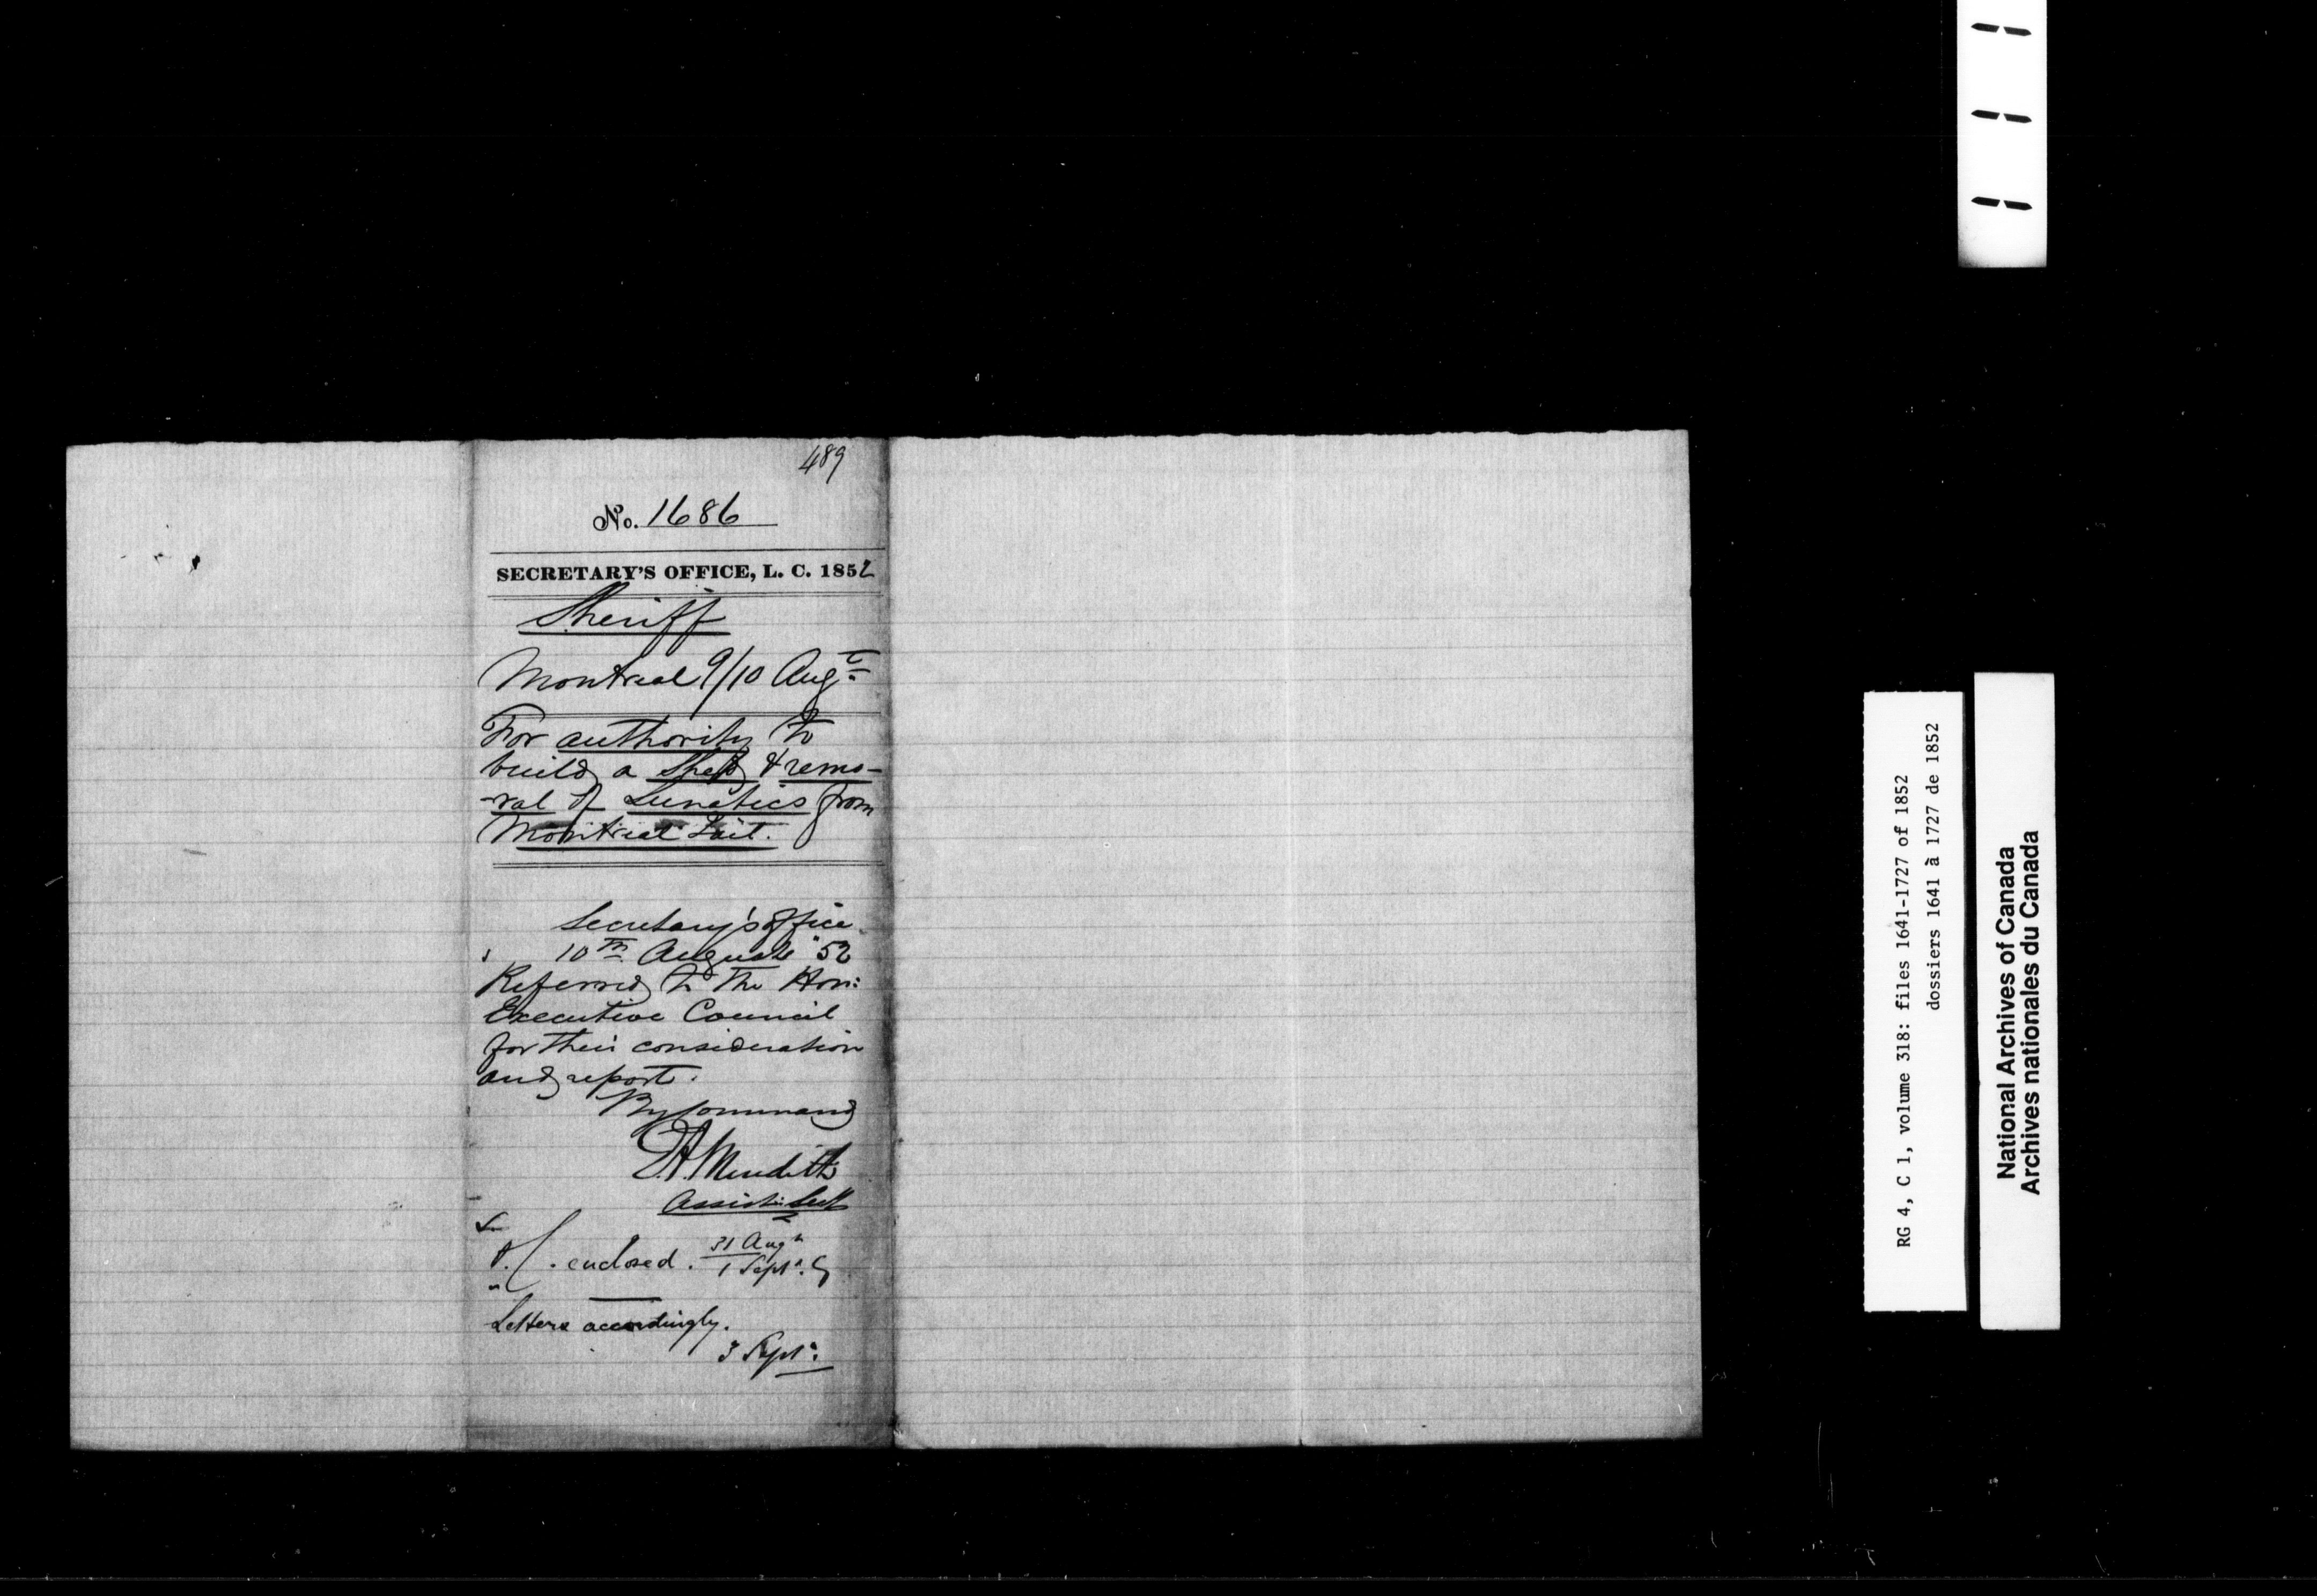 489
No. 1686
SECRETARY'S OFFICE, L. C. 1852
Sheriff
Montreal 9/10 Augt
For authority to
build a Shed & remo-
-val of Lunatics from
Montreal Gaol.
Secretary's Office
10th August "52
Referred to the Hon:
Executive Council
for their consideration
and report.
By Command
E.A. Meredith
Assist: Secy
enclosed. 31 Augt
1 Sept.
Letters accordingly.
3 Sept:
RG 4, C 1, volume 318: files 1641-1727 of 1852
dossiers 1641 à 1727 de 1852
National Archives of Canada
Archives nationales du Canada